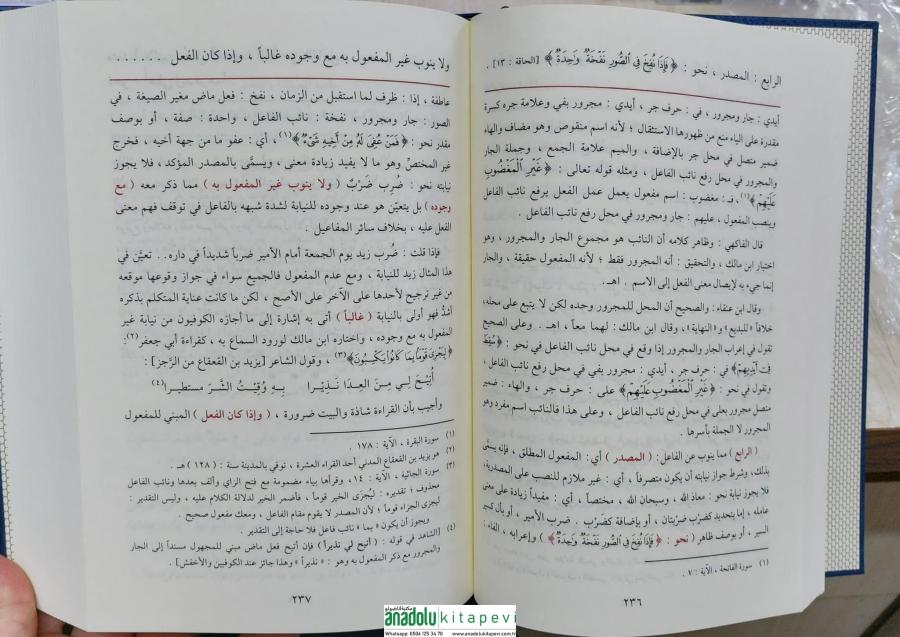 الرابع : المصدر ، نحو : ﴿ فَإِذَا نُفِخَ فِي الصُّورِ نَفْخَةٌ وَاحِدَةٌ ﴾ [الحاقة : ١٣] .
أيدي : جار ومجرور ، في : حرف جر ، أيدي : مجرور بفي وعلامة جره كسرة
مقدرة على الياء منع من ظهورها الاستثقال ؛ لأنه اسم منقوص وهو مضاف والهاء
ضمير متصل في محل جر بالإضافة ، والميم علامة الجمع ، وجملة الجار
والمجرور في محل رفع نائب الفاعل ، ومثله قوله تعالى : ﴿ غَيْرِ الْمَغْضُوبِ
عَلَيْهِمْ ﴾(١)، فـ : مغضوب : اسم مفعول يعمل عمل الفعل يرفع نائب الفاعل
وينصب المفعول ، عليهم : جار ومجرور في محل رفع نائب الفاعل .
قال الفاكهي : وظاهر كلامه أن النائب هو مجموع الجار والمجرور ، وهو
اختيار ابن مالك ، والتحقيق : أنه المجرور فقط ؛ لأنه المفعول حقيقة ، والجار
إنما جيء به لإيصال معنى الفعل إلى الاسم . اهـ .
وقال ابن عنقاء : والصحيح أن المحل للمجرور وحده لكن لا يتبع على محله،
خلافاً «للبديع» و« النهاية »، وقال ابن مالك : لهما معاً ، اهـ . وعلى الصحيح
تقول في إعراب الجار والمجرور إذا وقع في محل نائب الفاعل في نحو : ﴿ سُقِطَ
فِي أَيْدِيهِمْ ﴾ في : حرف جر ، أيدي : مجرور بفي في محل رفع نائب الفاعل ،
وتقول في نحو : ﴿ غَيْرِ الْمَغْضُوبِ عَلَيْهِمْ ﴾ على : حرف جر ، والهاء : ضمير
متصل مجرور بعلى في محل رفع نائب الفاعل ، وعلى هذا فالنائب اسم مفرد وهو
المجرور لا الجملة بأسرها .
( الرابع ) مما ينوب عن الفاعل: ( المصدر ) أي: المفعول المطلق ، فإنه يسمَّى
بذلك، وشرط جواز نيابته أن يكون متصرفاً ، أي : غير ملازم للنصب على المصدرية،
فلا يجوز نيابة نحو : معاذ الله ، وسبحان الله ، مختصاً ، أي : مفيداً زيادة على معنى
عامله ، إما بتحديد كضرب ضربتان ، أو بإضافة كضَرْب . ضرب الأمير ، أو بأل كسير
السير ، أو بوصف ظاهر ( نحو : ﴿ فَإِذَا نُفِخَ فِي الصُّورِ نَفْخَةٌ وَاحِدَةٌ ﴾ ) وإعرابه ، الفاء :
(١) سورة الفاتحة ، الآية : ٧ .
٢٣٦
ولا ينوب غير المفعول به مع وجوده غالباً ، وإذا كان الفعل . . . . . .
عاطفة ، إذا : ظرف لما استقبل من الزمان ، نفخ : فعل ماض مغير الصيغة ، في
الصور : جار ومجرور ، نفخة : نائب الفاعل ، واحدة : صفة ، أو بوصف
مقدر نحو : ﴿ فَمَنْ عُفِيَ لَهُ مِنْ أَخِيهِ شَيْءٌ ﴾(١) ، أي : عفو ما من جهة أخيه ، فخرج
غير المختصِّ وهو ما لا يفيد زيادة معنى ، ويسمَّى بالمصدر المؤكد، فلا يجوز
نيابته نحو : ضُرِب ضَرْبٌ ( ولا ينوب غير المفعول به ) مما ذكر معه ( مع
وجوده ) بل يتعيَّن هو عند وجوده للنيابة لشدة شبهه بالفاعل في توقف فهم معنى
الفعل عليه ، بخلاف سائر المفاعيل .
فإذا قلت : ضُرب زيد يوم الجمعة أمام الأمير ضرباً شديداً في داره.. تعيَّن في
هذا المثال زيد للنيابة ، ومع عدم المفعول فالجميع سواء في جواز وقوعها موقعه
من غير ترجيح لأحدها على الآخر على الأصح ، لكن ما كانت عناية المتكلم بذكره
أشدَّ فهو أولى بالنيابة ( غالباً ) أتى به إشارة إلى ما أجازه الكوفيون من نيابة غير
المفعول به مع وجوده ، واختاره ابن مالك لورود السماع به ، كقراءة أبي جعفر(٢):
﴿ لِيُجْزَىٰ قَوْمًا بِمَا كَانُوا يَكْسِبُونَ ﴾(٣) ، وقول الشاعر [يزيد بن القعقاع من الرَّجز] :
أُتِيْحَ لِـي مِـنَ العِـدَا نَـذِيْـرَا بِـهِ وُقِيْـتُ الشَّـرَ مستطيـرا(٤)
وأجيب بأن القراءة شاذة والبيت ضرورة ، ( وإذا كان الفعل ) المبني للمفعول
(١) سورة البقرة ، الآية : ١٧٨ .
(٢) هو يزيد بن القعقاع المدني أحد القراء العشرة ، توفي بالمدينة سنة : ( ١٢٨ ) هـ .
(٣) سورة الجاثية ، الآية : ١٤، وقرأها بياء مضمومة مع فتح الزاي وألف بعدها ونائب الفاعل
محذوف ؛ تقديره : ليُجزَى الخير قوماً ، فأضمر الخير لدلالة الكلام عليه ، وليس التقدير :
ليجزى الجزاء قوماً ؛ لأن المصدر لا يقوم مقام الفاعل ، ومعك مفعول صحيح .
ويجوز أن يكون « بما » نائب فاعل فلا حاجة إلى التقدير .
(٤) [الشاهد في قوله : (أتيح لي نذيراً) فإن أتيح فعل ماض مبني للمجهول مسنداً إلى الجار
والمجرور مع ذكر المفعول به وهو : « نذيراً » وهذا جائز عند الكوفيين والأخفش] .
٢٣٧
anadolu kitapevi
Whatsapp: 0506 125 34 70 www.anadolukitapevi.com.tr